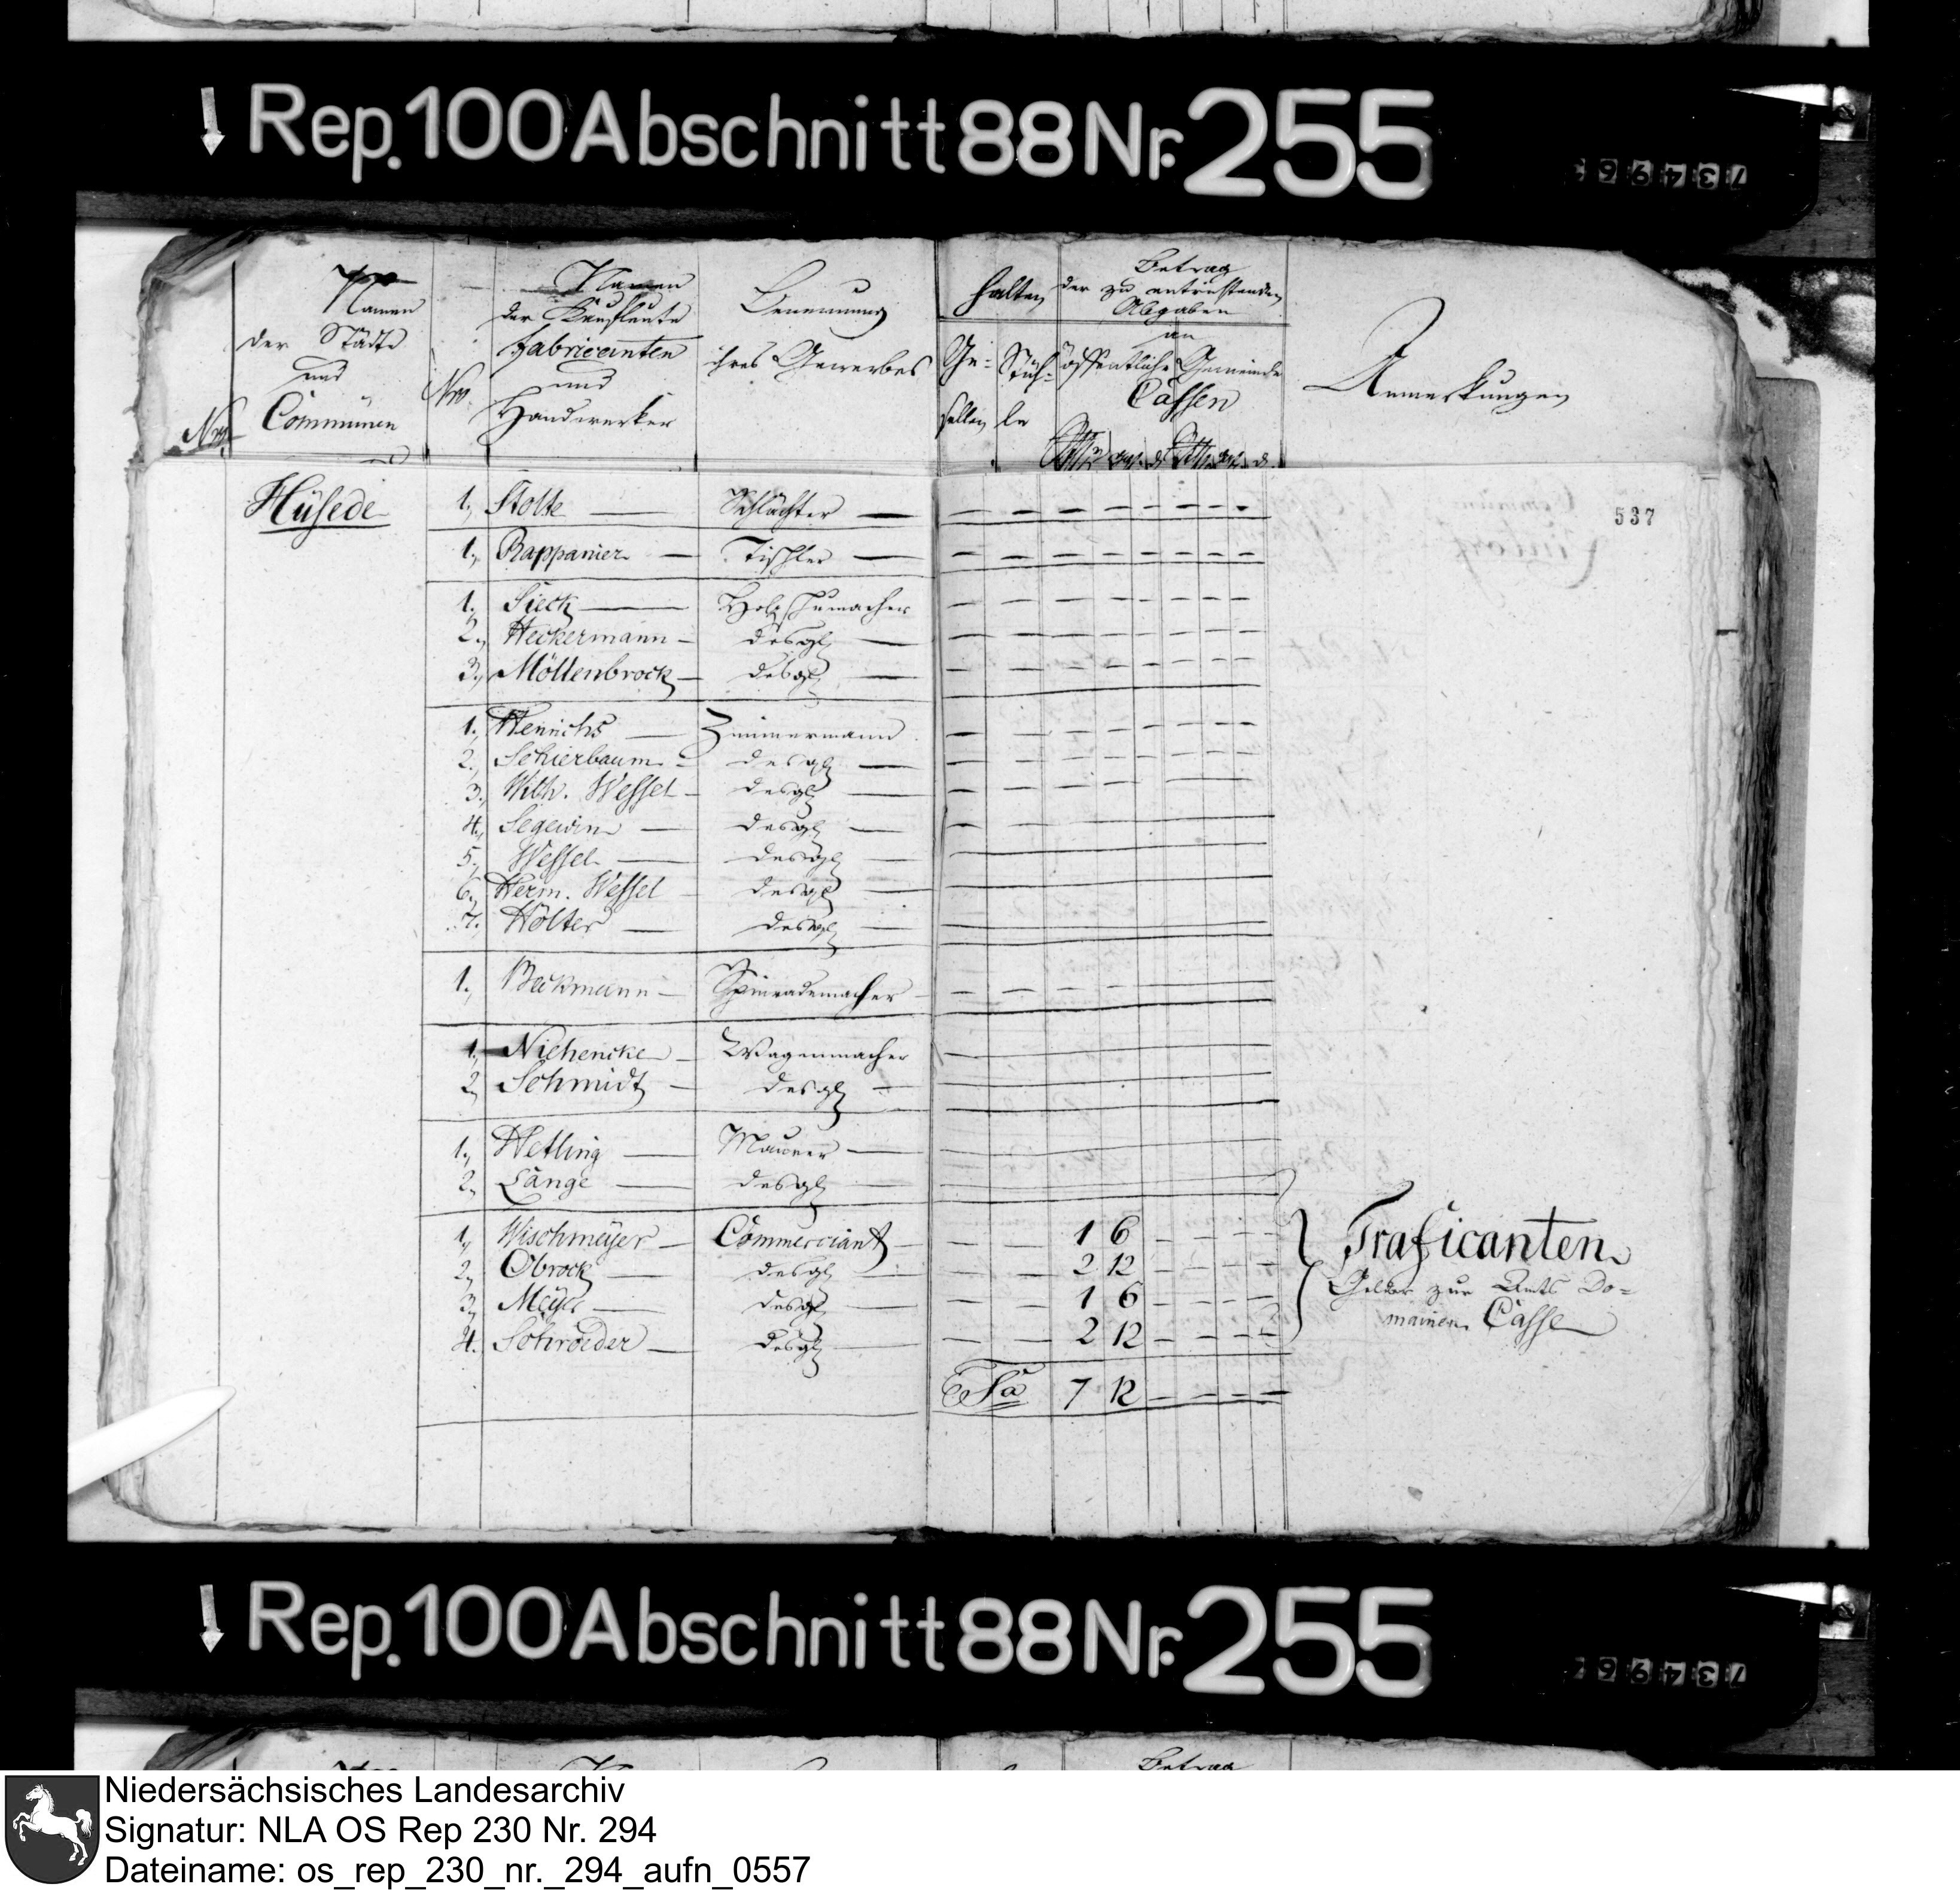 Rep. 100 Abschnitt 88 Nr. 255
734967
Namen der Städte und Communen
Nro.
Namen der Kaufleute Fabricanten und Handwerker
Benennung ihres Gewerbes
halten
Ge-sellen
Stüh-le
Betrag der zu entrichtenden Abgaben an
öffentliche Gemeinde
Cassen
Anmerkungen
537
Hüsede
1., Stolte — Schlächter —
1., Rappanier — Tischler —
1., Sieck — Holzschumacher
2., Heckermann — desgl —
3., Möllenbrock — desgl —
1., Henrichs — Zimmermann
2., Schierbaum — desgl —
3., Wilh. Wessel — desgl —
4., Segewin — desgl —
5., Wessel — desgl —
6., Herm. Wessel — desgl —
7., Hölter — desgl —
1., Beckmann — Spinrademacher —
1., Niehencke — Wagenmacher
2., Schmidt — desgl —
1., Hetling — Maurer —
2., Lange — desgl —
1., Wischmeyer — Commerciant — 1 6
2., Obrock — desgl — 2 12
3., Meyer — desgl — 1 6
4., Schroeder — desgl — 2 12
Sa 7 12
Traficanten
Gelder zur Amts Do=
mainen Casse
Rep. 100 Abschnitt 88 Nr. 255
734967
Betrag
Niedersächsisches Landesarchiv
Signatur: NLA OS Rep 230 Nr. 294
Dateiname: os_rep_230_nr._294_aufn_0557